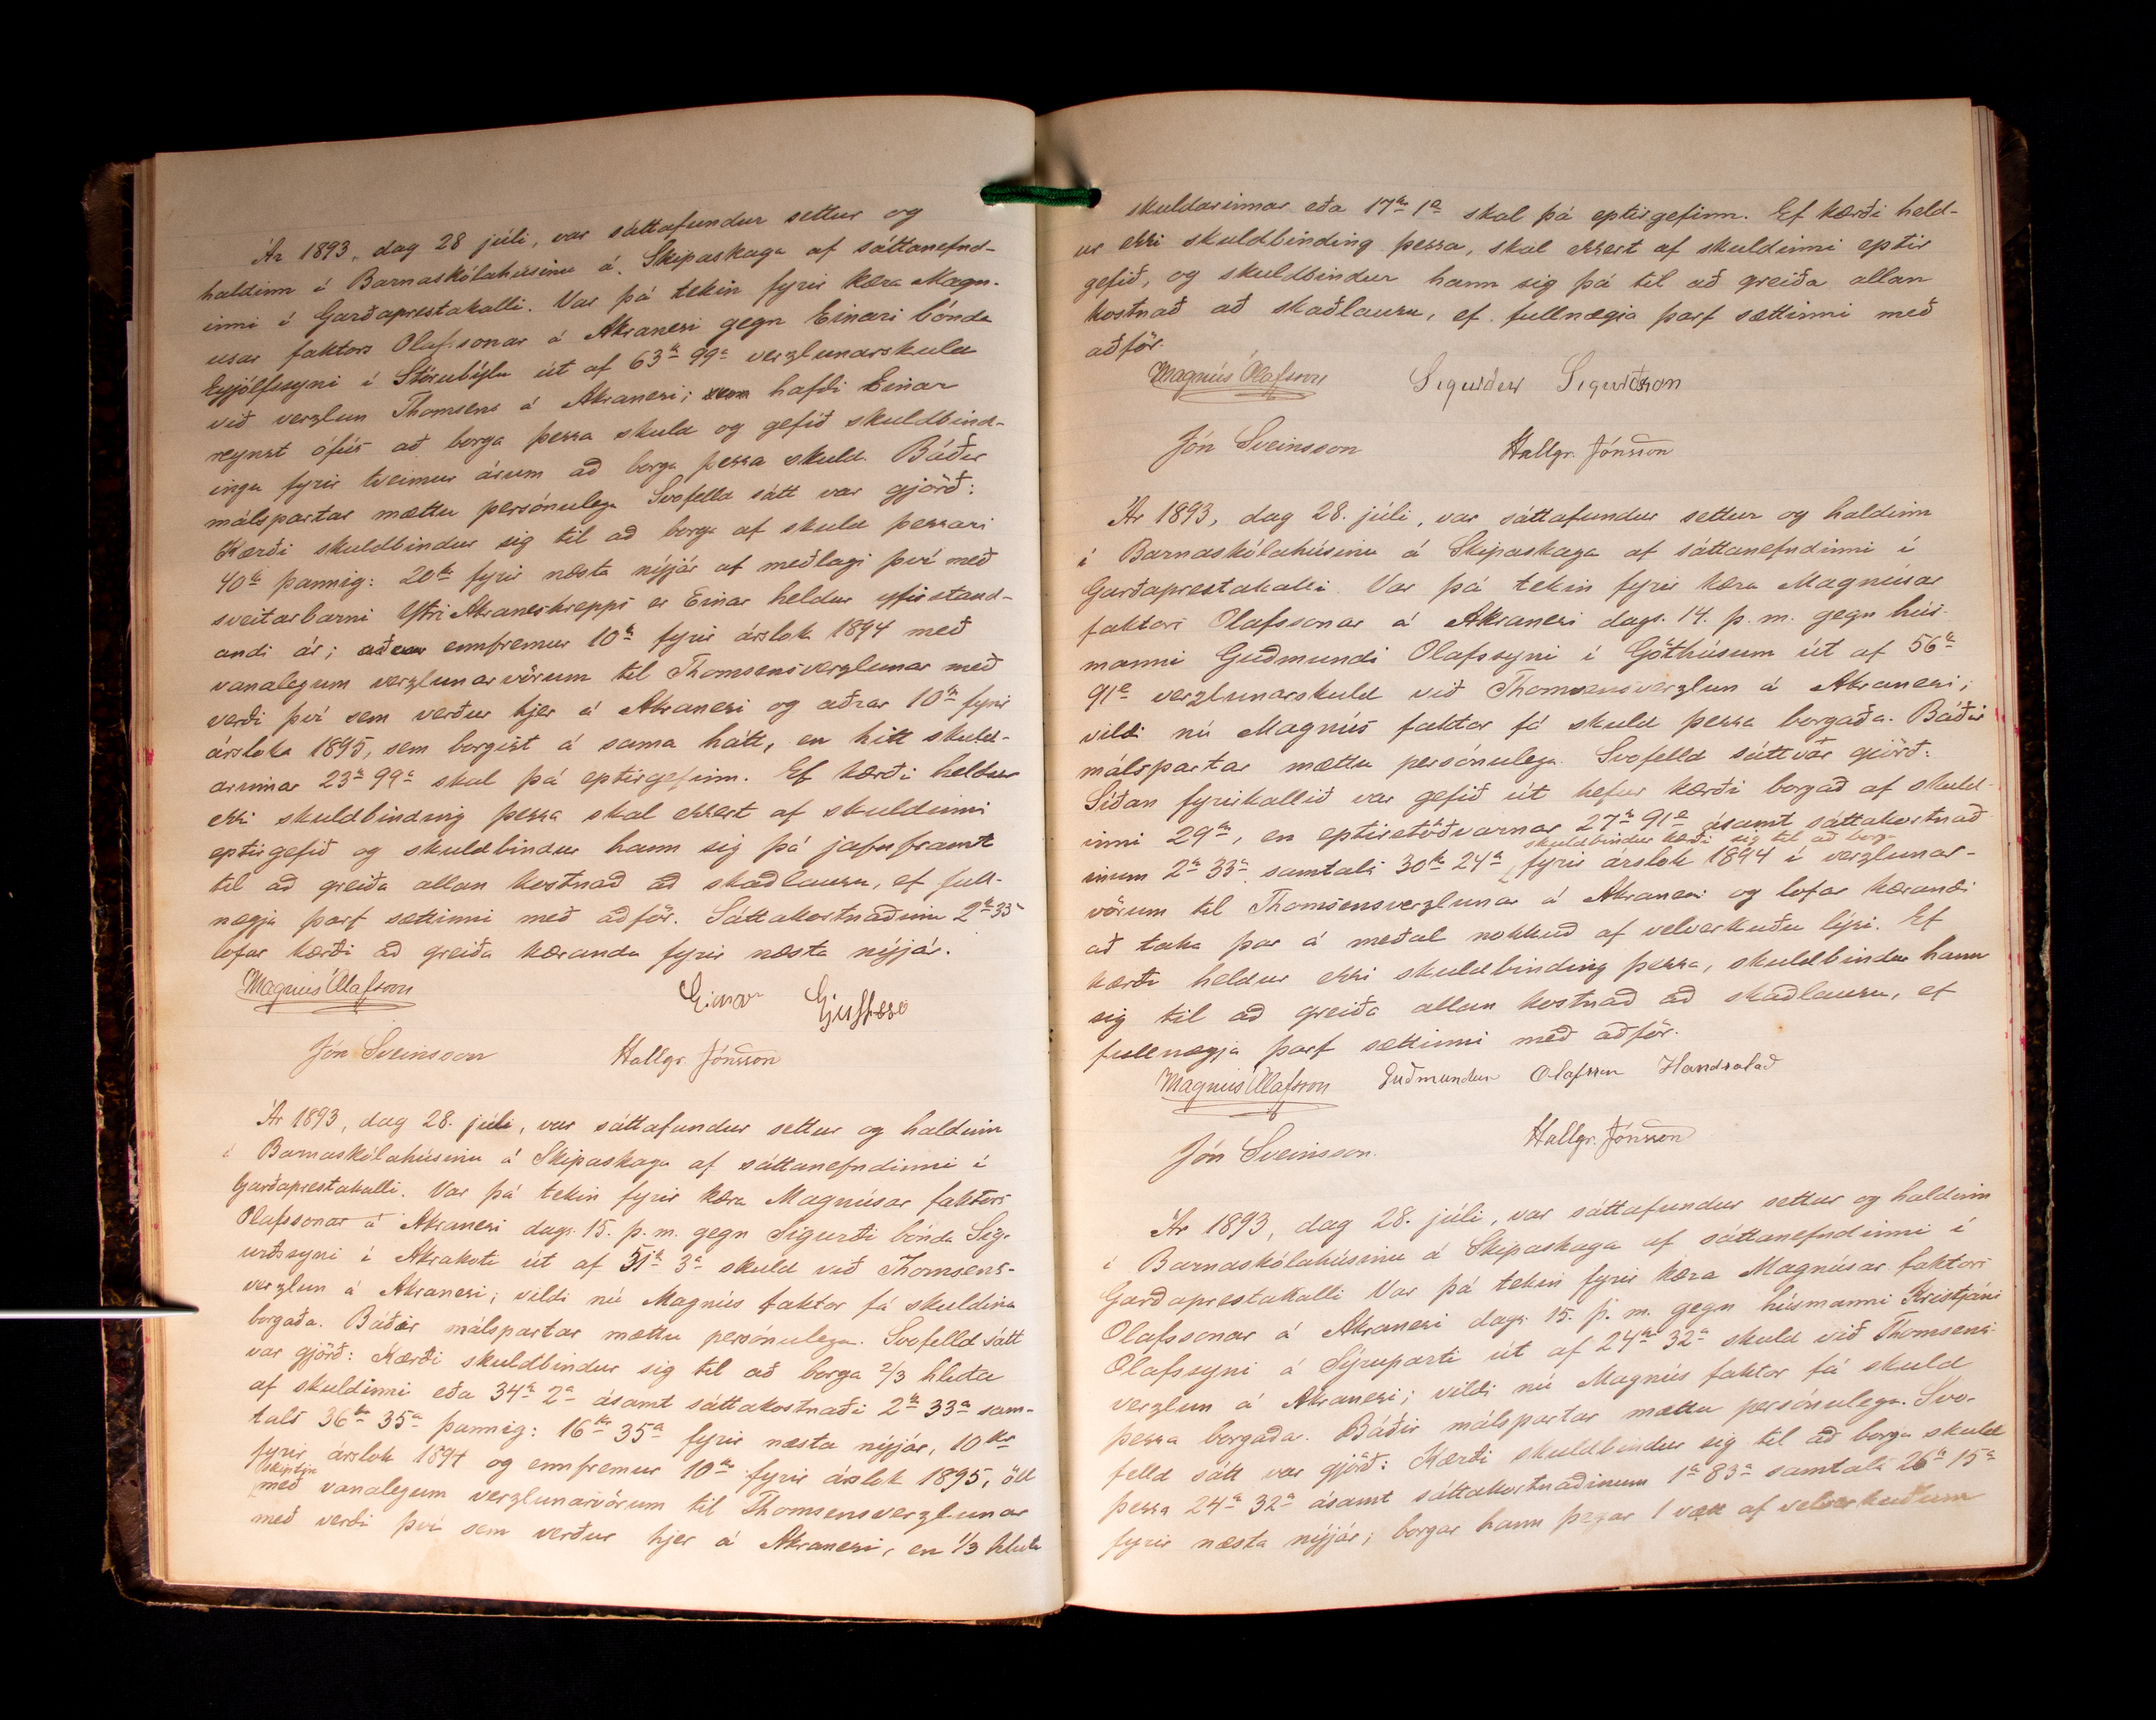 Ár 1893, dag 28 júli, var sáttafundur settur og
haldinn í Barnaskólahúsinu á Skipaskaga af sáttanefnd-
inni í Garðaprestakalli. Var þá tekin fyrir kæra Magn-
usar faktors Olafssonar á Akranesi gegn Einari bónda
Eyjólfssyni í Stórubýlu út af 63 kr 99 a verzlunarskuld
við verzlun Thomsens á Akranesi; hafði Einar
reynst ófús að borga þessa skuld og gefið skuldbind-
ingu fyrir tveimur árum að borga þessa skuld. Báðir
málspartar mættu persónulega. Svofelld sátt var gjörð:
Kærði skuldbindur sig til að borga af skuld þessari
40 kr þannig: 20 kr fyrir næsta nýjár af meðlagi því með
sveitarbarni Ytri Akraneshrepps er Einar heldur yfirstand-
andi ár; ennfremur 10 kr fyrir árslok 1894 með
vanalegum verzlunarvörum til Thomsensverzlunar með
verði því sem verður hjer á Akranesi og aðrar 10 kr fyrir
árslok 1895, sem borgist á sama hátt, en hitt skuld-
arinnar 23 kr 99 a skal þá eptirgefinn. Ef kærði heldur
ekki skuldbinding þessa skal ekkert af skuldinni
eptirgefið og skuldbindur hann sig þá jafnframt
til að greiða allan kostnað að skaðlausu, ef full-
nægja þarf sættinni með aðför. Sáttakostnaðinn 2 kr 33 a
lofar kærði að greiða kæranda fyrir næsta nýjár.
Magnús Olafsson Einar
Jón Sveinsson Hallgr. Jónsson
Ár 1893, dag 28. júli, var sáttafundur settur og haldinn
í Barnaskólahúsinu á Skipaskaga af sáttanefndinni í
Garðaprestakalli. Var þá tekin fyrir kæra Magnúsar faktors
Olafssonar á Akranesi dags. 15. þ. m. gegn Sigurði bónda Sig-
urðssyni í Akrakoti út af 51 kr 3 a skuld við Thomsens-
verzlun á Akranesi; vildi nú Magnús faktor fá skuldina
borgaða. Báðir málspartar mættu persónulega. Svofelld sátt
var gjörð: Kærði skuldbindur sig til að borga 2/3 hluta
af skuldinni eða 34 kr 2 a ásamt sáttakostnaði 2 kr 33 a sam-
tals 36 kr 35 a þannig: 16 kr 35 a fyrir næsta nýjár, 10 kr
fyrir árslok 1894 og ennfremur 10 kr fyrir árslok 1895, öll
með vanalegum verzlunarvörum til Thomsensverzlunar
með verði því sem verður hjer á Akranesi, en 1/3 hluta
skuldarinnar eða 17 kr 1 a skal þá eptirgefinn. Ef kærði held-
ur ekki skuldbinding þessa, skal ekkert af skuldinni eptir
gefið, og skuldbindur hann sig þá til að greiða allan
kostnað að skaðlausu, ef fullnægia þarf sættinni með
aðför.
Magnús Olafsson Sigurður Sigurðsson
Jón Sveinsson Hallgr. Jónsson
Ár 1893, dag 28. júli, var sáttafundur settur og haldinn
í Barnaskólahúsinu á Skipaskaga af sáttanefndinni í
Garðaprestakalli. Var þá tekin fyrir kæra Magnúsar
faktors Olafssonar á Akranesi dags. 14. þ. m. gegn hús-
manni Guðmundi Olafssyni í Göthúsum út af 56 kr
91 a verzlunarskuld við Thomsensverzlun á Akranesi;
vildi nú Magnús faktor fá skuld þessa borgaða. Báðir
málspartar mættu persónulega. Svofelld sátt var gjörð:
Síðan fyrirkallið var gefið út hefur kærði borgað af skuld-
inni 29 kr, en eptirstöðvarnar 27 kr 91 a ásamt sáttakostnað
skuldbindur kærði sig til að borga
inum 2 kr 33 a samtals 30 kr 24 a fyrir árslok 1894 í verzlunar-
vörum til Thomsensverzlunar á Akranesi og lofar kærandi
að taka þar á meðal nokkuð af velverkuðu lýsi. Ef
kærði heldur ekki skuldbinding þessa, skuldbindur hann
sig til að greiða allan kostnað að skaðlausu, ef
fullnægja þarf sættinni með aðför.
Magnús Olafsson Guðmundur Olafsson Handsalað
Jón Sveinsson. Hallgr. Jónsson
Ár 1893, dag 28. júli, var sáttafundur settur og haldinn
í Barnaskólahúsinu á Skipaskaga af sáttanefndinni í
Garðaprestakalli Var þá tekin fyrir kæra Magnúsar faktors
Olafssonar á Akranesi dags. 15. þ. m. gegn húsmanni Kristjáni
Olafssyni á Sýruparti út af 24 kr 32 a skuld við Thomsens-
verzlun á Akranesi; vildi nú Magnús faktor fá skuld
þessa borgaðar. Báðir málspartar mættu persónulega. Svo-
felld sátt var gjörð: Kærði skuldbindur sig til að borga skuld
þessa 24 kr 32 a ásamt sáttakostnaðinum 1 kr 83 a samtals 26 kr 15 a
fyrir næsta nýjár; borgar hann þegar 1 vætt af velverkuðum